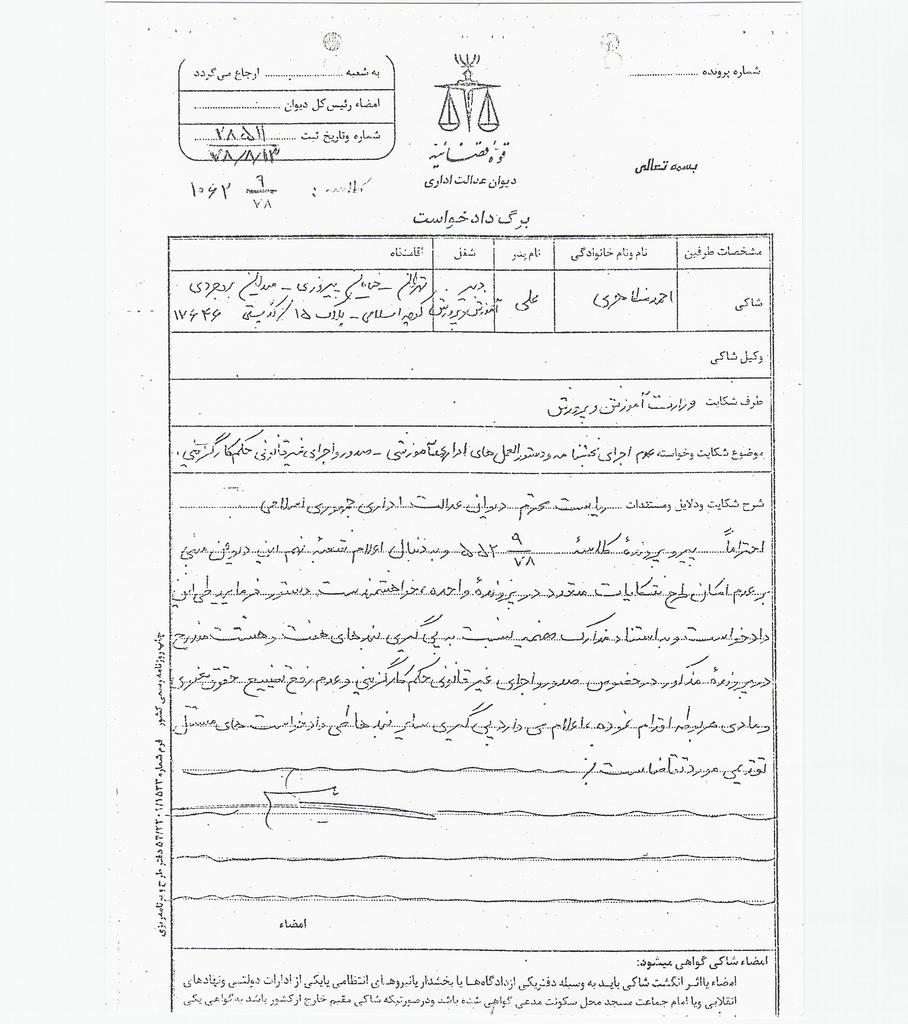 شماره پرونده ....................
به شعبه .................... ارجاع می‌گردد
امضاء رئیس کل دیوان ....................
شماره وتاریخ ثبت ........ ۲۸۵۱۱
۷۸/۸/۱۳
قوهٔ قضائیه
دیوان عدالت اداری
بسمه تعالی
کلاسه : ۹/۷۸ ۱۰۶۲
برگ دادخواست
مشخصات طرفین نام ونام خانوادگی نام پدر شغل اقامتگاه
شاکی احمد علی دبیر آموزش و پرورش تهران - خیابان پیروزی - میدان بروجردی
کوچه اسلامی - پلاک ۱۵ / کدپستی ۱۷۶۴۶
وکیل شاکی
طرف شکایت وزارت آموزش و پرورش
موضوع شکایت وخواسته عدم اجرای بخشنامه و دستورالعمل های اداری آموزشی - صدور و اجرای غیرقانونی حکم کارگزینی .
شرح شکایت ودلایل ومستندات ریاست محترم دیوان عدالت اداری جمهوری اسلامی
احتراماً پیرو پروندهٔ کلاسهٔ ۹/۷۸ ۵۵۲ و به دنبال اعلام شعبه نهم این دیوان مبنی
بر عدم امکان طرح شکایات متعدد در پروندهٔ واحده ، خواهشمند است دستور فرمایید طی این
دادخواست و به استناد مدارک ضمیمه نسبت به پی گیری بندهای هفت و هشت مندرج
در پروندهٔ مذکور در خصوص صدور و اجرای غیرقانونی حکم کارگزینی و عدم رفع تضییع حقوق معنوی
و مادی مربوطه اقدام نموده ، اعلام می دارد پی گیری سایر بندها طی دادخواست های مستقل
تقدیمی مورد تقاضاست
امضاء
امضاء شاکی گواهی میشود:
امضاء یااثر انگشت شاکی باید به وسیله دفتر یکی ازدادگاه‌ها یا بخشدار یانیروهای انتظامی یایکی از ادارات دولتی ونهادهای
انقلابی ویا امام جماعت مسجد محل سکونت مدعی گواهی شده باشد ودرصورتیکه شاکی مقیم خارج ازکشور باشد به گواهی یکی
چاپ روزنامه رسمی کشور فرم شماره ۵۴/۲۳۰۱/۱۵۳۳ دفتر طرح و برنامه‌ریزی